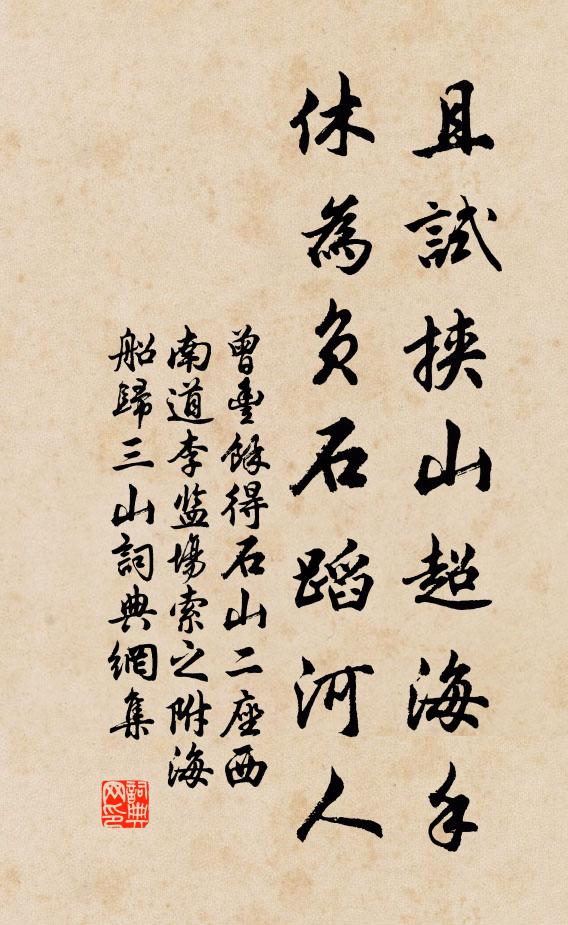 且試挾山超海手
休為負石蹈河人
曾豐餘得石山二座西
南道李監場索之附海
船歸三山詞典網集
詞典
网印